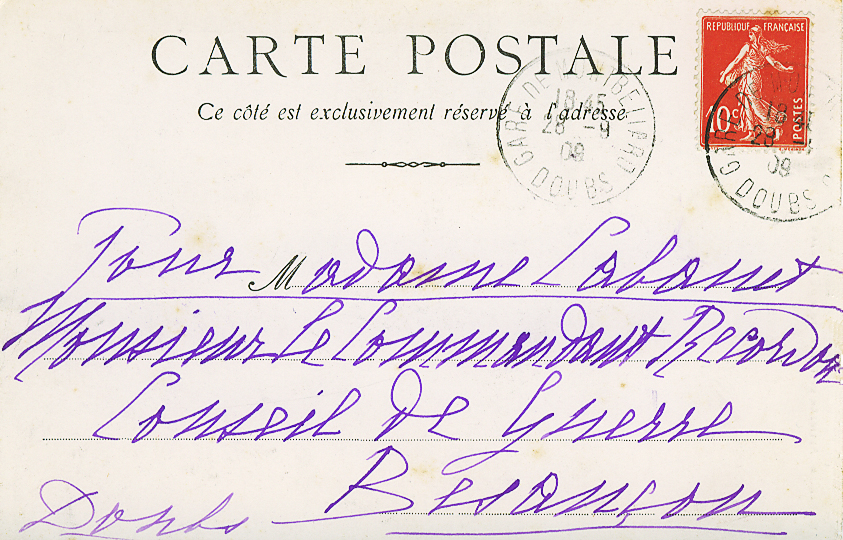 CARTE POSTALE
Ce côté est exclusivement réservé à l'adresse
RÉPUBLIQUE FRANÇAISE
10c POSTES
GARE DE MONTBELIARD
18 45
28 - 9
09
DOUBS
GARE
18 45
28 - 9
09
DOUBS
Pour Madame Labanet
Monsieur Le Commandant Recordon
Conseil de Guerre
Besançon
Doubs